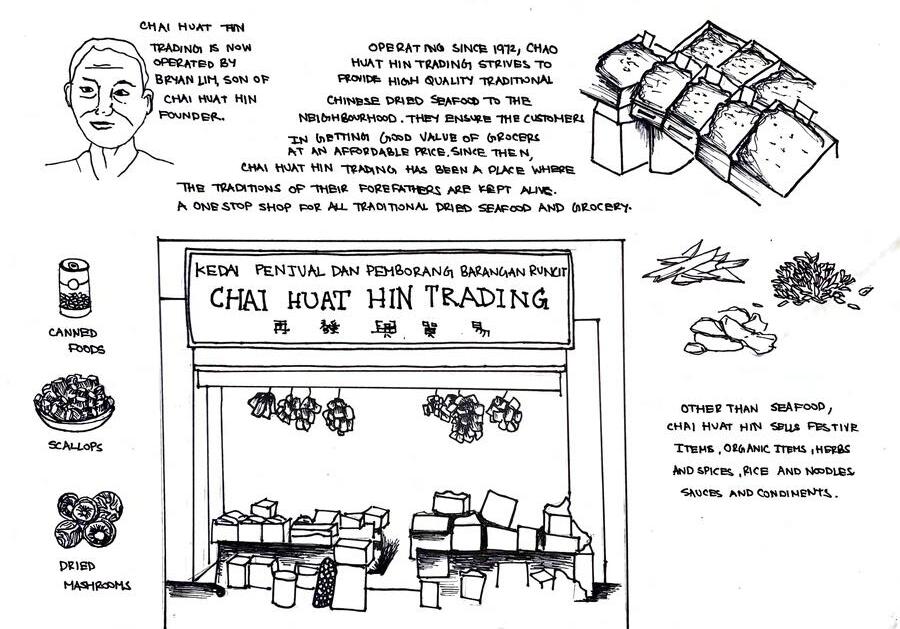 CHAI HUAT HIN
TRADING IS NOW
OPERATED BY
BRYAN LIM, SON OF
CHAI HUAT HIN
FOUNDER.
OPERATING SINCE 1972, CHAO
HUAT HIN TRADING STRIVES TO
PROVIDE HIGH QUALITY TRADITIONAL
CHINESE DRIED SEAFOOD TO THE
NEIGHBOURHOOD. THEY ENSURE THE CUSTOMERS
IN GETTING GOOD VALUE OF GROCERS
AT AN AFFORDABLE PRICE. SINCE THEN,
CHAI HUAT HIN TRADING HAS BEEN A PLACE WHERE
THE TRADITIONS OF THEIR FOREFATHERS ARE KEPT ALIVE.
A ONE STOP SHOP FOR ALL TRADITIONAL DRIED SEAFOOD AND GROCERY.
KEDAI PENJUAL DAN PEMBORANG BARANGAN RUNCIT
CHAI HUAT HIN TRADING
再發興貿易
CANNED
FOODS
SCALLOPS
DRIED
MASHROOMS
OTHER THAN SEAFOOD,
CHAI HUAT HIN SELLS FESTIVE
ITEMS, ORGANIC ITEMS, HERBS
AND SPICES, RICE AND NOODLES
SAUCES AND CONDIMENTS.